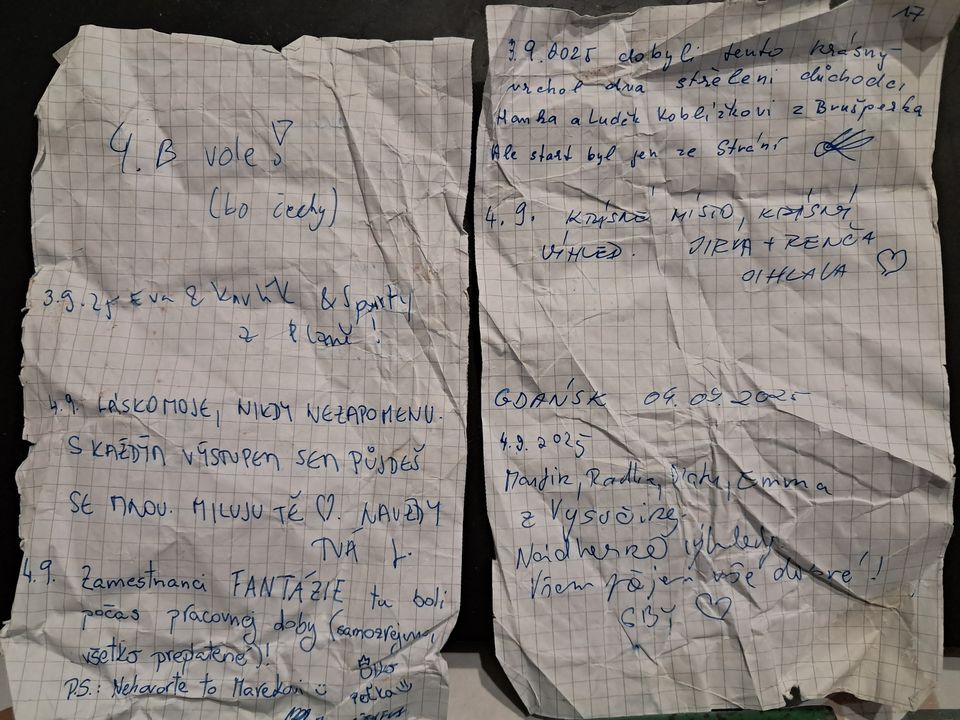 4. B vole!
(bo čechy)
3.9.25 Eva & & Sparty
z !
4.9. LÁSKO MOJE, NIKDY NEZAPOMENU.
S KAŽDÝM VÝSTUPEM SEM PŮJDEŠ
SE MNOU. MILUJU TĚ ♡. NAVŽDY
TVÁ J.
4.9. Zamestnanci FANTÁZIE tu boli
počas pracovnej doby (samozrejme,
všetko preplatené)!
P.S.: Nehovorte to Marekovi
17
3.9.2025 dobyli tento krásný
vrchol dva střelení důchodci
Hanka a Luděk Koblížkovi z Brušperka
Ale start byl jen ze Strání
4.9. KRÁSNÉ MÍSTO, KRÁSNÝ
VÍHLED. JIRKA + RENČA
JIHLAVA ♡
GDAŃSK 04.09.2025
4.9.2025
Radka, Emma
z Vysočiny
Nádherné výhledy
Všem přejem vše dobré!!
♡